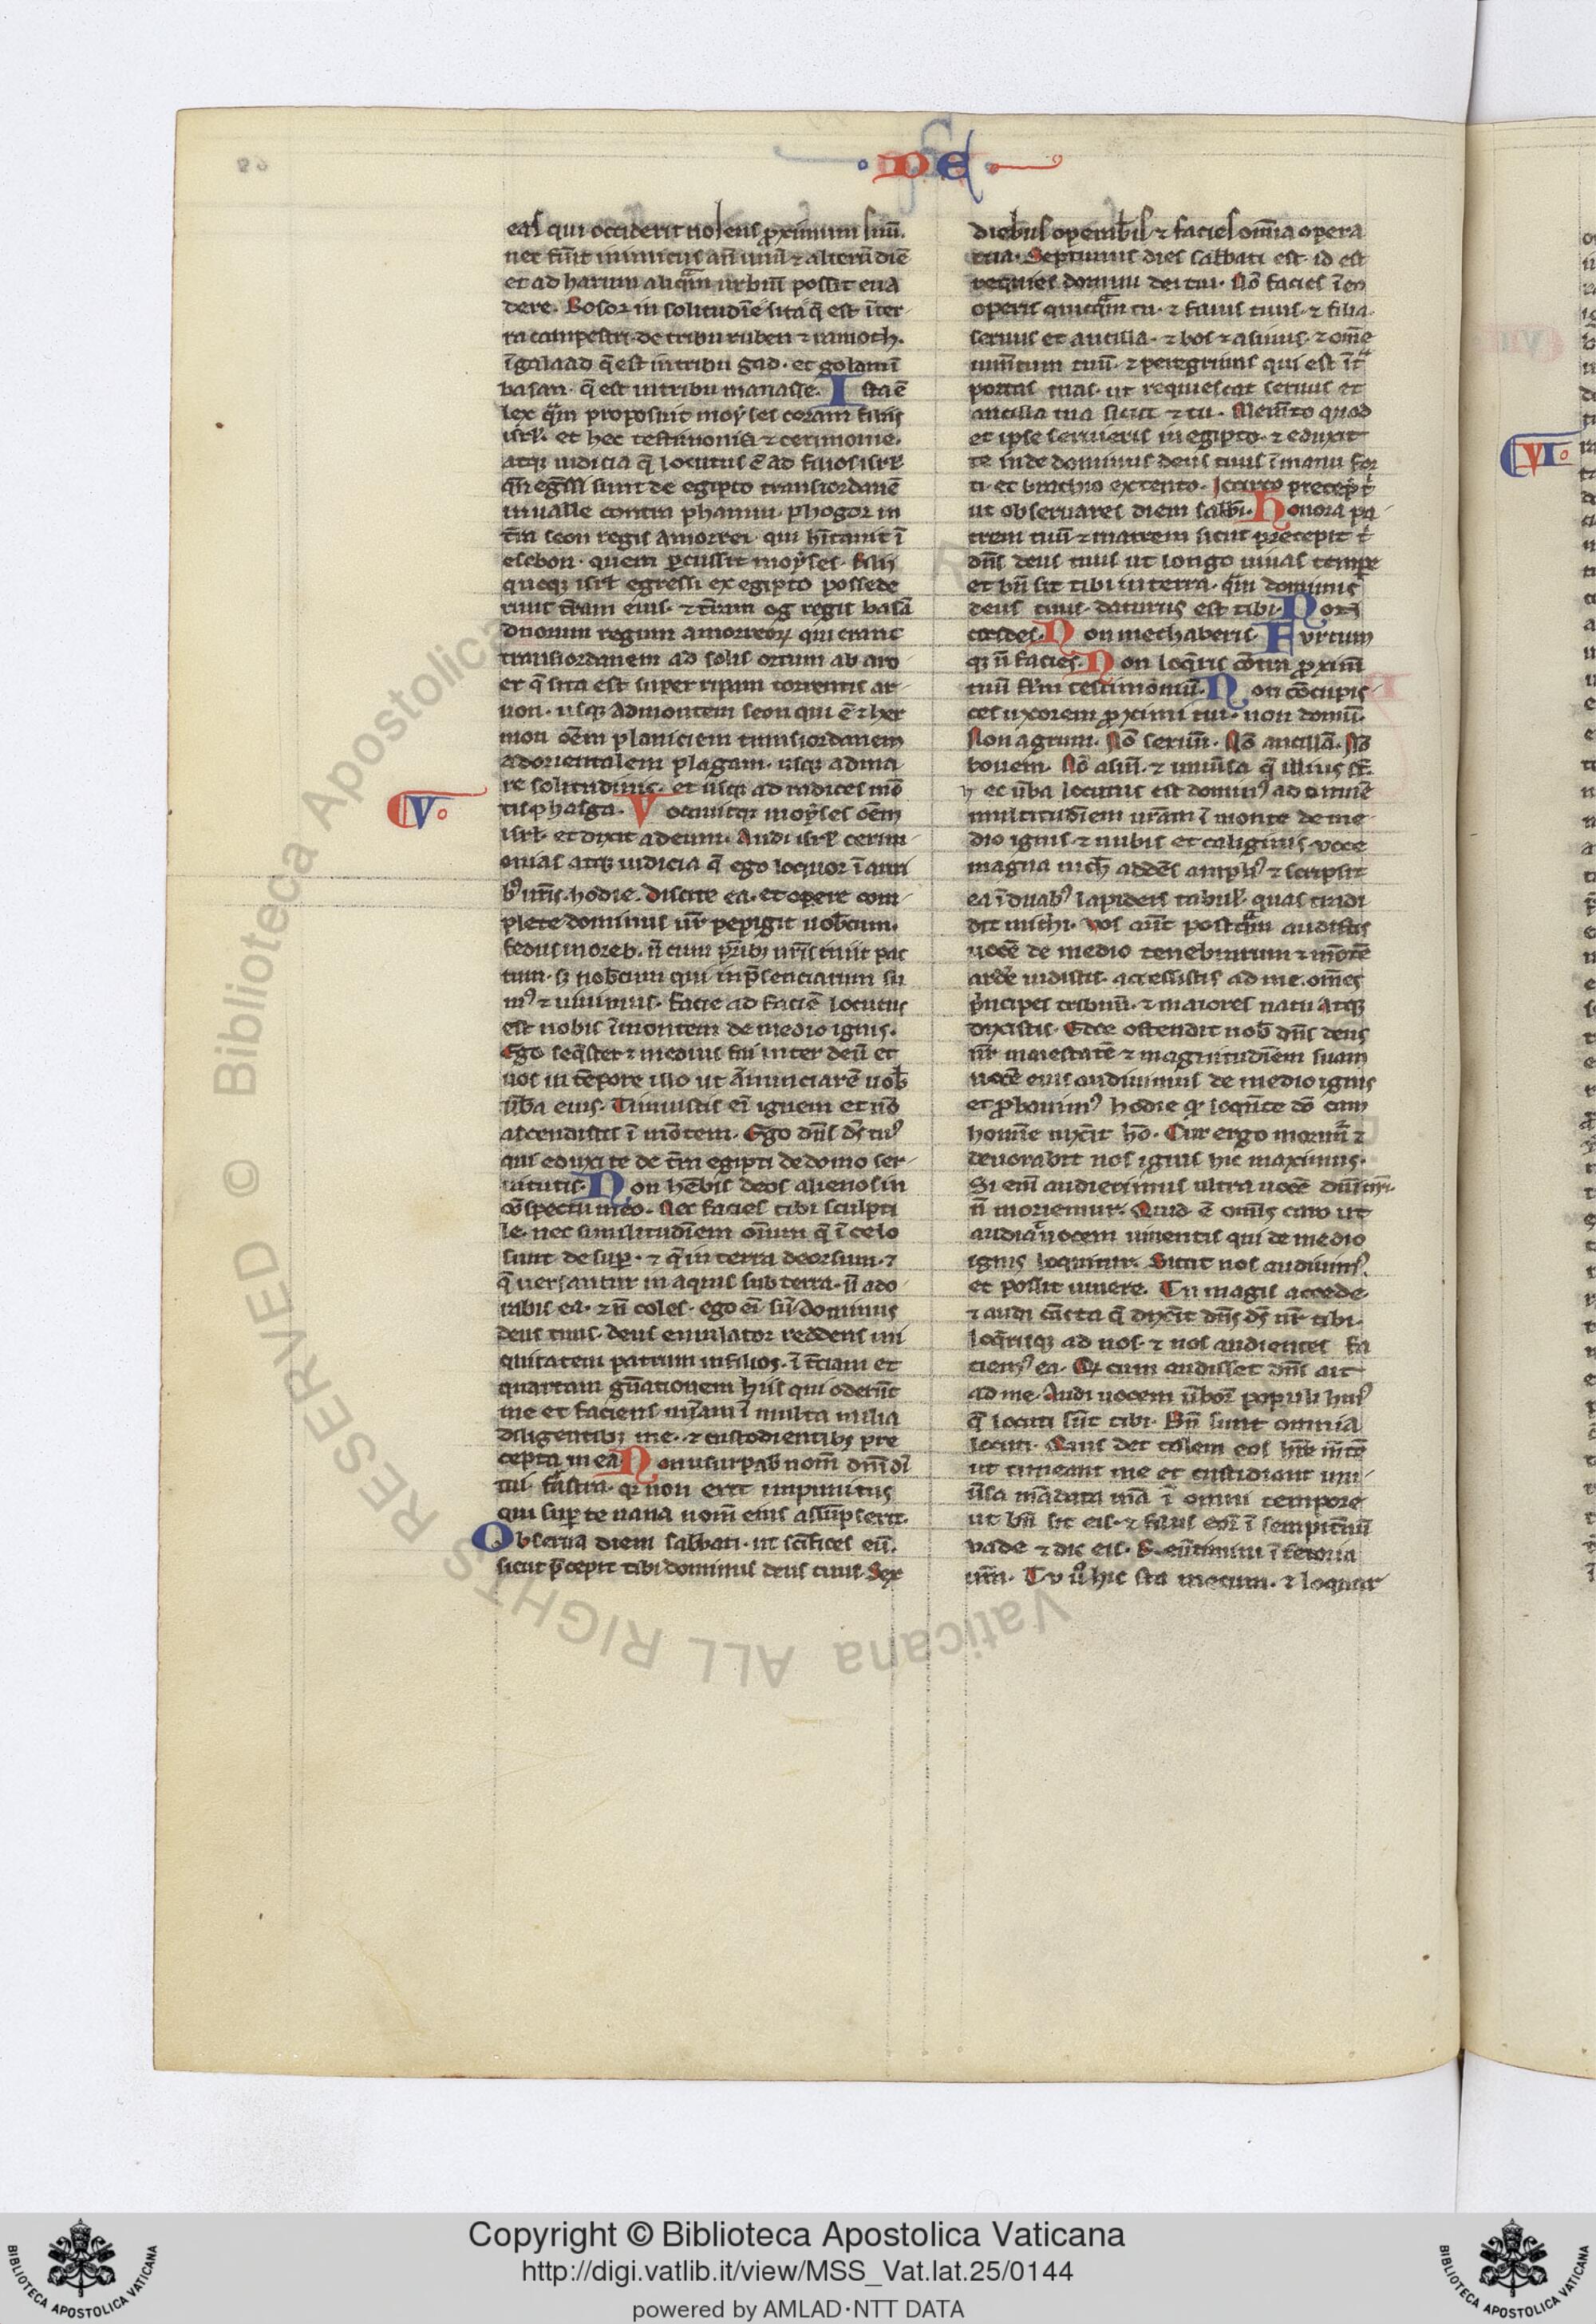 DE
eas qui occiderit nolens ꝓximum suū.
nec fuit inimicꝰ añ unū ⁊ alterū diē
et ad harum aliquā urbiū possit eua
dere. Bosor in solitudīe sita q̄ est ī ter
ra campestri de tribu ruben ⁊ ramoth.
ī galaad q̄ est in tribu gad. et golam ī
basan. q̄ est in tribu manasse. Ista ē
lex quā proposuit moẏses coram filiis
isrl̓. et hec testimonia ⁊ cerimonie.
atqꝫ iudicia q̄ locutus ē ad filios isrl̓
qn̄ eg̃ssi sunt de egipto trans iordanē
in ualle contra phanum phogor in
tr̄a seon regis amorrei qui hītauit ī
esebon. quem ꝑcussit moẏses. filij
quoqꝫ isrl̓ egressi ex egipto possede
runt tr̄am eius. ⁊ tr̄am og regis basā
duorum regum amorreoꝝ qui erant
trans iordanem ad solis ortum ab aro
er q̄ sita est super ripam torrentis ar
non. usqꝫ ad montem seon qui ē ⁊ her
mon oēm planiciem trans iordanem
ad orientalem plagam. usqꝫ ad ma
re solitudinis. et usqꝫ ad radices mō
tis phasga. Vocauitqꝫ moẏses oēm
V
isrl̓. et dixit ad eum. Audi isrl̓ cerim
onias atqꝫ iudicia q̄ ego loquor ī auri
bꝰ ur̄is. hodie. Discite ea. et opere com
plete dominus nr̄ pepigit nobcum.
fedus in oreb. n̄ cum pr̄ibꝫ nr̄is iniit pac
tum. sꝫ nobcum qui in p̄senciarum su
mꝰ ⁊ uiuimus. facie ad faciē locutus
est nobis ī montem de medio ignis.
Ego seq̄ster ⁊ medius fui inter deū et
uos in tēpore illo ut ānunciarē uob̄
ūba eius. Timuistis eī ignem et nō
ascendistis ī mōtem. Ego dn̄s ds̄ tuꝰ
qui eduxi te de tr̄a egipti de domo ser
uitutis. Non hēbis deos alienos in
ꝯspectu meo. Nec facies tibi sculpti
le. nec similitudīem oīum q̄ ī celo
sunt desuꝑ. ⁊ q̄ in terra deorsum. ⁊
q̄ uersantur in aquis sub terra. n̄ ado
rabis ea. ⁊ n̄ coles. ego eī sū dominus
deus tuus. deus emulator reddens ini
quitatem patrum in filios. ī t̄ciam et
quartam gn̄ationem hiis qui oderūt
me et faciens mīam ī multa milia
diligentibꝫ me. ⁊ custodientibꝫ pre
cepta mea Non usurpab̄ nom̄ dn̄i dī
tui frustra. qꝛ non erit impunitus
qui suꝑ re uana nom̄ eius assūpserit.
Obserua diem sabbati. ut sc̄ifices eū.
sicut p̄cepit tibi dominus deus tuus. Sex
diebus operab̓is ⁊ facies om̄ia opera
tua. Septimus dies sabbati est. id est
requies domini dei tui. Nō facies ī eo
operis quicquā tu. ⁊ filius tuus. ⁊ filia.
seruus et ancilla. ⁊ bos ⁊ asinus. ⁊ om̄e
iumētum tuū. ⁊ peregrinus qui est īt̄
portas tuas. ut requiescat seruus et
ancilla tua sicut ⁊ tu. Memēto quod
et ipse seruieris in egipto. ⁊ eduxit
te inde dominus deus tuus ī manu for
ti. et brachio extento. Iccirco precep̄ t̓
ut obseruares diem sabb̄i. Honora pa
trem tuū ⁊ matrem sicut precepit t̓
dn̄s deus tuus ut longo uiuas tempe
et bn̄ sit tibi in terra. quā dominus
deus tuus. daturus est tibi. Non
occides. Non mechaberis. Furtum
qꝫ n̄ facies. Non loq̄ris cōtra ꝓximū
tuū fl̄m testimoniū. Non cōcupis
ces uxorem ꝓximi tui. non domū.
Non agrum. Nō seruū. Nō ancillā. Nō
bouem. Nō asinū. ⁊ uniūsa q̄ illius sū̄t.
hec ūba locutus est dominꝰ ad omnē
multitudīem ur̄am ī monte de me
dio ignis ⁊ nubis et caliginis. uoce
magna nich̄ addēs ampliꝰ ⁊ scripsit
ea ī duabꝰ lapideis tabul̓. quas tradi
dit michi. Vos aūt postquā audistis
uocē de medio tenebrarum ⁊ mōtē
ardē̓ uidistis. accessistis ad me. om̄es
p̓ncipes tribuū. ⁊ maiores natu atqꝫ
dixistis. Ecce ostendit nob̄ dn̄s deus
nr̄ maiestatē ⁊ magnitudīem suam
uocē eius audiuimus de medio ignis
et ꝓbauimꝰ hodie qꝛ loquēte dō cum
homīe uixīt hō. Cur ergo morimur ⁊
deuorabit nos ignis hic maximus.
Si enī audierimus ultra uocē dn̄i dei nr̄i.
n̄ moriemur. Quid ē om̄is caro ut
audiat uocem uiuentis qui de medio
ignis loquitur. Sicut nos audiuimꝰ.
et possit uiuere. Tu magis accede
⁊ audi cūcta q̄ dixīt dn̄s ds̄ nr̄ tibi.
loq̄risqꝫ ad nos. ⁊ nos audientes fa
ciemꝰ ea. Qꝛ cum audisset dn̄s ait
ad me. Audi uocem ūboꝝ populi huiꝰ
q̄ locuti sūt tibi. Bn̄ sunt omnia
locuti. Quis det talem eos hr̄e mētē
ut timeant me et custodiant uni
ūsa mādata mā ī omni tempore
ut bn̄ sit eis. ⁊ filiis eoꝝ ī sempit̄nū
vade ⁊ dic eis. Reūtimini ī tetoria
ur̄a. Tu ū̓ hic sta mecum. ⁊ loquar
VI
Biblioteca Apostolica Vaticana ALL RIGHTS RESERVED ©
Copyright © Biblioteca Apostolica Vaticana
http://digi.vatlib.it/view/MSS_Vat.lat.25/0144
powered by AMLAD·NTT DATA
BIBLIOTECA APOSTOLICA VATICANA
BIBLIOTECA APOSTOLICA VATICANA